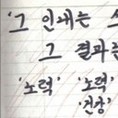 '그 인내는
그 결과는
'노력' '노력'
'건강'